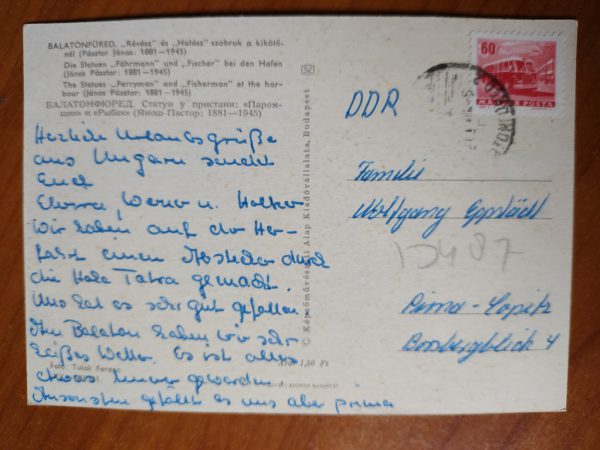 BALATONFÜRED. „Révész” és „Halász” szobrok a kikötő-
nél (Pásztor János: 1881—1945)
Die Statuen „Fährmann” und „Fischer” bei den Hafen
(János Pásztor: 1881—1945)
The Statues „Ferryman” and „Fisherman” et the har-
bour (János Pásztor: 1881—1945)
БАЛАТОНФЮРЕД. Статуи у пристани: «Паром-
щик» и «Рыбак» (Янош Пастор: 1881—1945)
Herzliche Urlaubsgrüße
aus Ungarn sendet
Euch
Werner u.
Wir haben auf der Her-
fahrt einen Abstecher durch
die Hohe Tatra gemacht.
Uns hat es sehr gut gefallen
Am Balaton haben wir sehr
heißes Wetter. Es ist alles
etwas teurer geworden
Ansonsten gefällt es uns aber prima
Foto: Tulok Ferenc
Ára: 1,50 Ft
© Képzőművészeti Alap Kiadóvállalata, Budapest
60
MAGYAR POSTA
DDR
Familie
Wolfgang
Pirna-Copitz
Borsbergblick 4